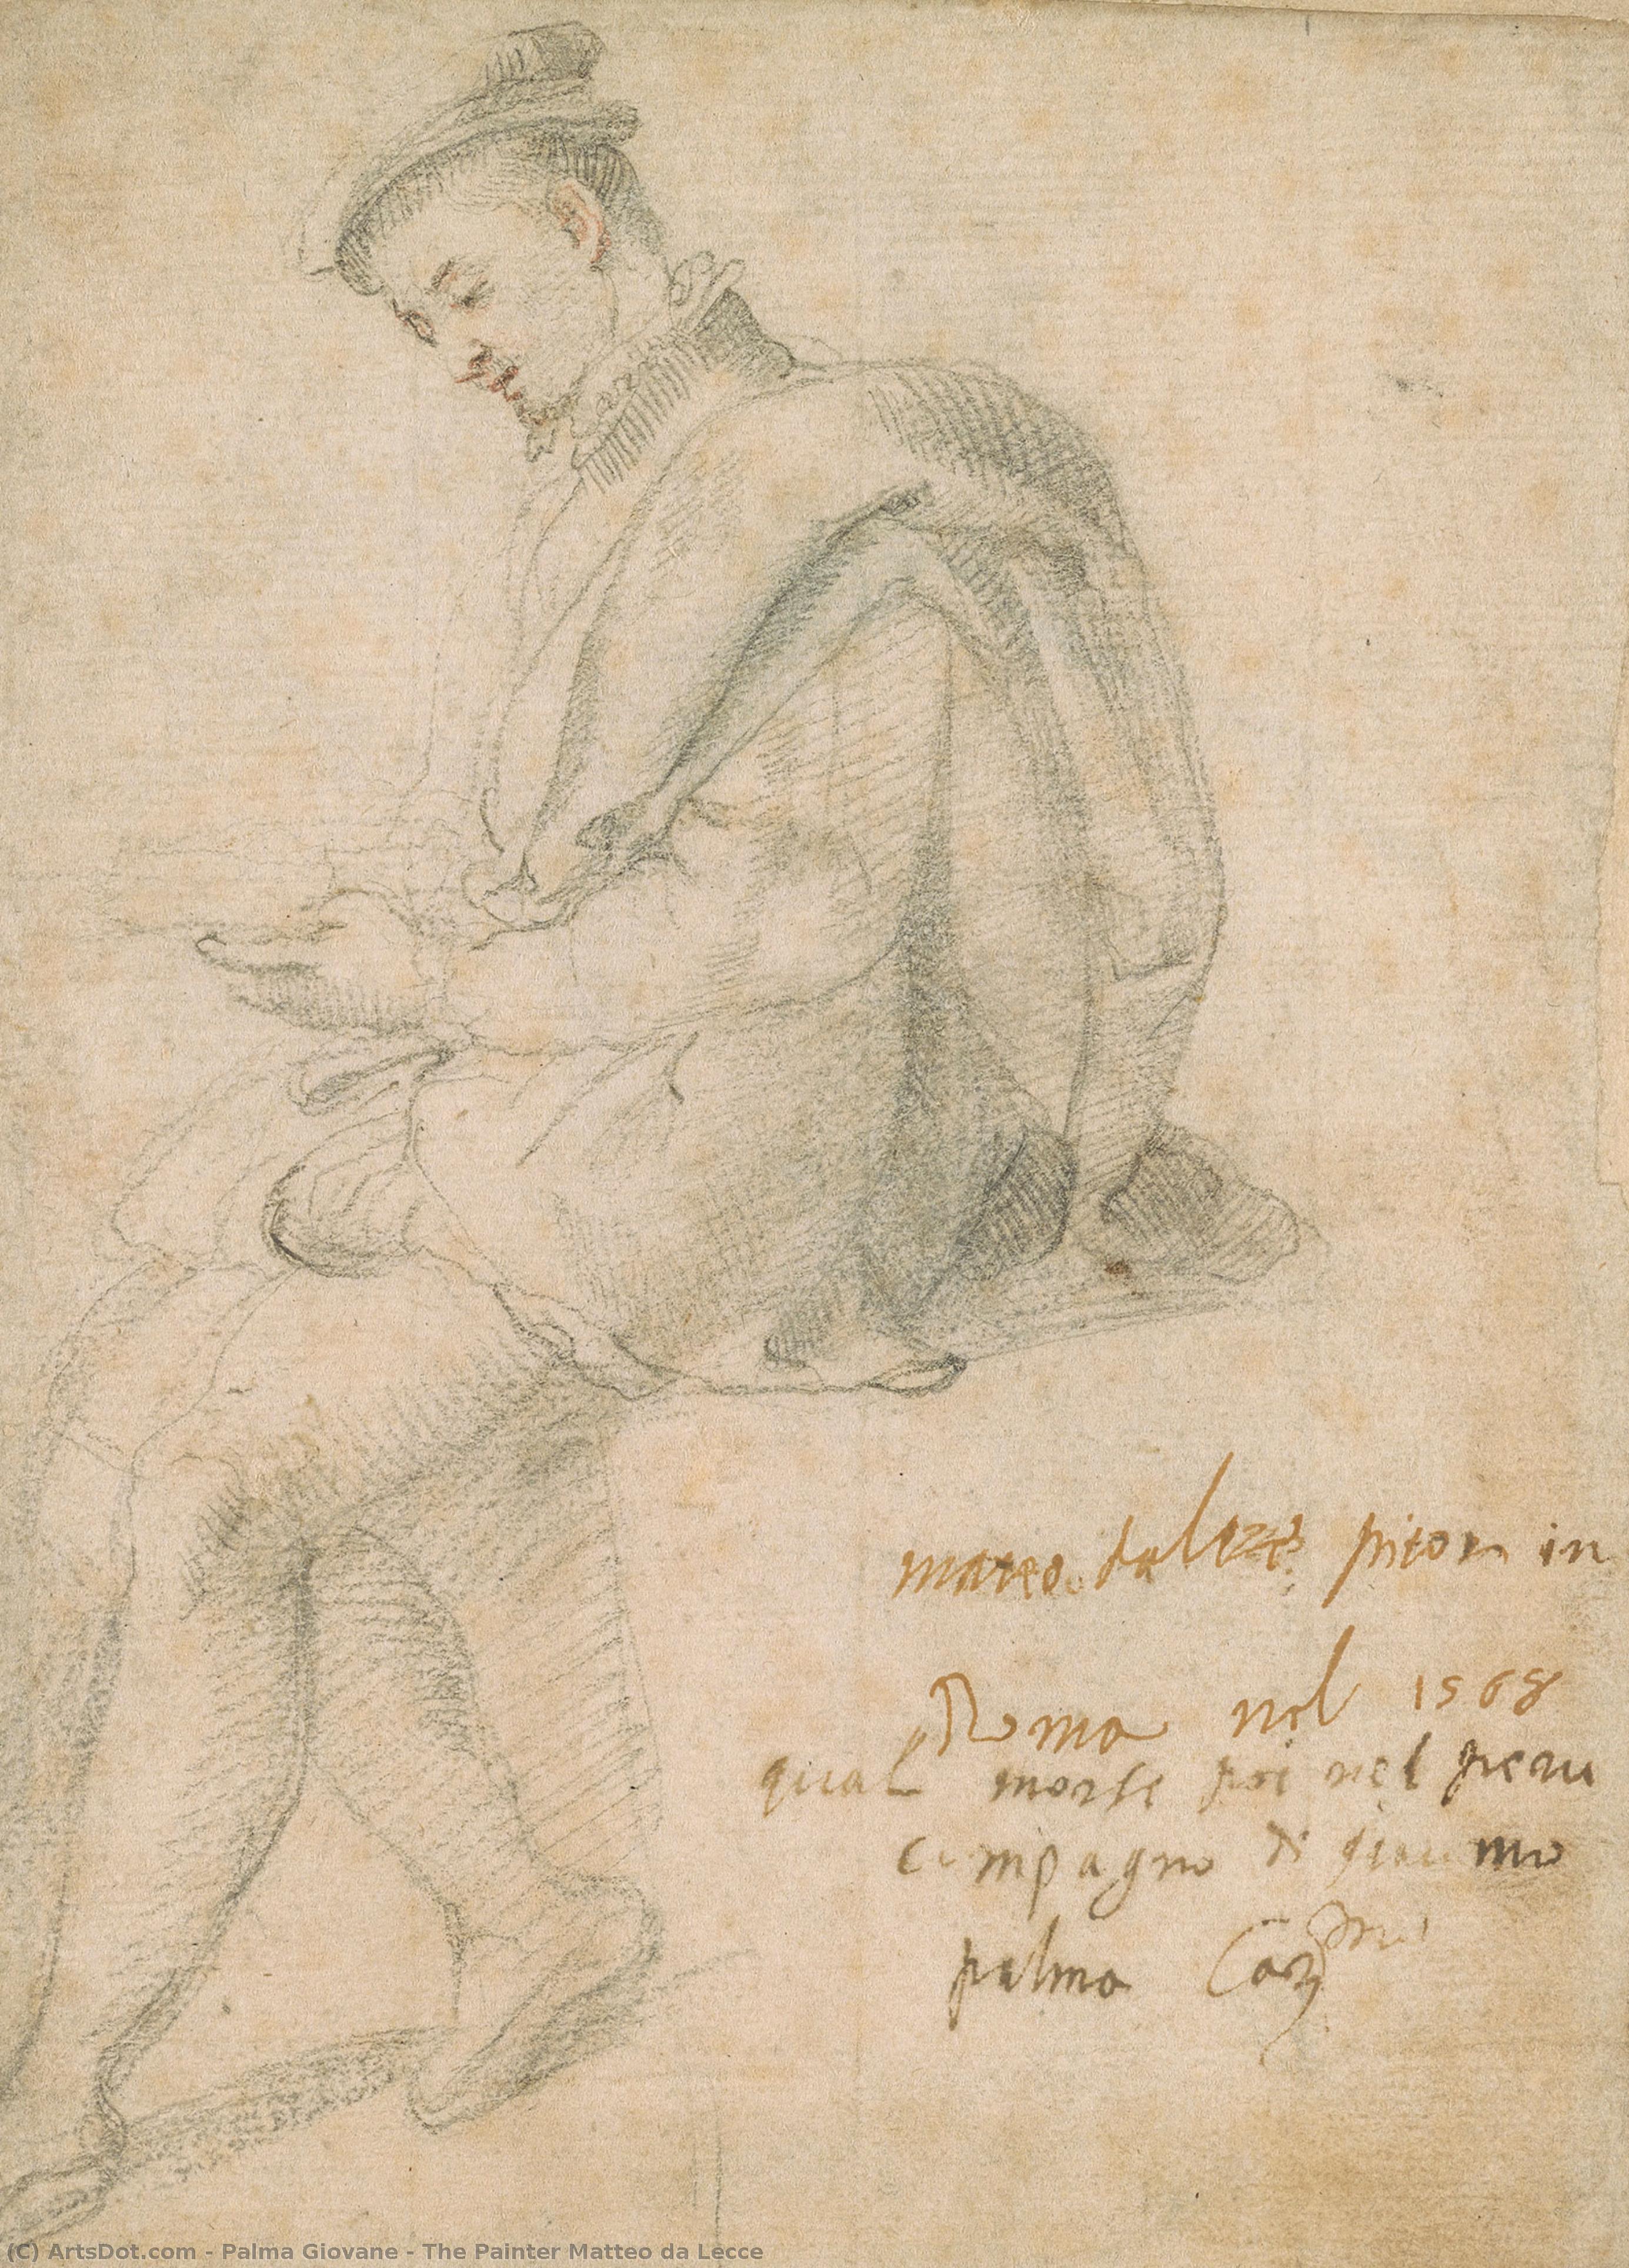 mateo da leze pitor in
Roma nel 1568
qual morse poi nel peru
compagno di giacomo
palma
(C) ArtsDot.com - Palma Giovane - The Painter Matteo da Lecce